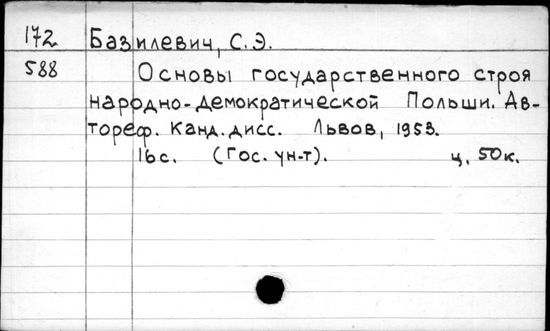 172 Базилевич, С.Э.
588 Основы государственного строя
народно-демократической Польши. Ав-
тореф. Канд. дисс. Львов, 1953.
16с. (Гос. ун-т). ц. 50к.